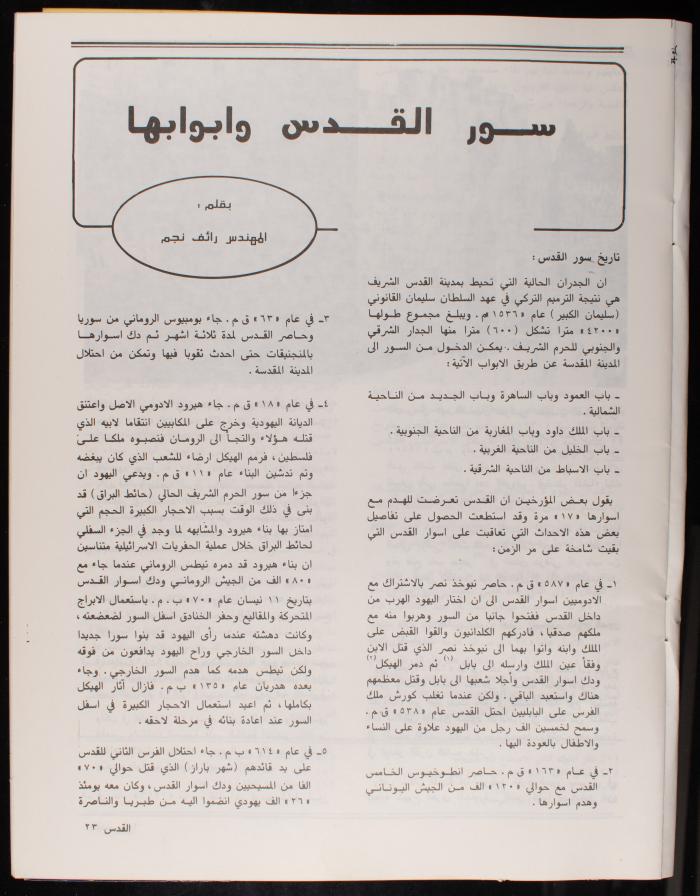 سور القدس وابوابها
بقلم :
المهندس رائف نجم
تاريخ سور القدس :
ان الجدران الحالية التي تحيط بمدينة القدس الشريف
هي نتيجة الترميم التركي في عهد السلطان سليمان القانوني
(سليمان الكبير) عام «١٥٣٦ م. ويبلغ مجموع طولها
«٤٢٠٠» مترا تشكل (٦٠٠) مترا منها الجدار الشرقي
والجنوبي للحرم الشريف . يمكن الدخول من السور الى
المدينة المقدسة عن طريق الابواب الآتية :
ـ باب العمود وباب الساهرة وباب الجديد من الناحية
الشمالية .
ـ باب الملك داود وباب المغاربة من الناحية الجنوبية .
ـ باب الخليل من الناحية الغربية .
ـ باب الاسباط من الناحية الشرقية .
يقول بعض المؤرخين ان القدس تعرضت للهدم مع
اسوارها «١٧» مرة وقد استطعت الحصول على تفاصيل
بعض هذه الاحداث التي تعاقبت على اسوار القدس التي
بقيت شامخة على مر الزمن :
١ـ في عام «٥٨٧» ق.م. حاصر نبوخذ نصر بالاشتراك مع
الادوميين اسوار القدس الى ان اختار اليهود الهرب من
داخل القدس ففتحوا جانبا من السور وهربوا منه مع
ملكهم صدقيا ، فادركهم الكلدانيون والقوا القبض على
الملك وابنه واتوا بهما الى نبوخذ نصر الذي قتل الابن
وفقأ عين الملك وارسله الى بابل (١) ثم دمر الهيكل(٢)
ودك اسوار القدس وأجلا شعبها الى بابل وقتل معظمهم
هناك واستعبد الباقي . ولكن عندما تغلب كورش ملك
الفرس على البابليين احتل القدس عام «٥٣٨» ق.م.
وسمح لخمسين الف رجل من اليهود علاوة على النساء
والاطفال بالعودة اليها .
٢ـ في عام «١٦٣» ق.م. حاصر انطوخيوس الخامس
القدس مع حوالي «١٢٠» الف من الجيش اليوناني
وهدم اسوارها .
٣ـ في عام «٦٣» ق.م. جاء بومبيوس الروماني من سوريا
وحاصر القدس لمدة ثلاثة اشهر ثم دك اسوارها
بالمنجنيقات حتى احدث ثقوبا فيها وتمكن من احتلال
المدينة المقدسة .
٤ـ في عام «١٨» ق.م. جاء هيرود الادومي الاصل واعتنق
الديانة اليهودية وخرج على المكابيين انتقاما لابيه الذي
قتله هؤلاء والتجأ الى الرومان فنصبوه ملكا على
فلسطين ، فرمم الهيكل ارضاء للشعب الذي كان يبغضه
وتم تدشين البناء عام «١١» ق.م. ويدعي اليهود ان
جزءا من سور الحرم الشريف الحالي (حائط البراق) قد
بنى في ذلك الوقت بسبب الاحجار الكبيرة الحجم التي
امتاز بها بناء هيرود والمشابهه لما وجد في الجزء السفلي
لحائط البراق خلال عملية الحفريات الاسرائيلية متناسين
ان بناء هيرود قد دمره تيطس الروماني عندما جاء مع
«٨٠» الف من الجيش الروماني ودك اسوار القدس
بتاريخ ١١ نيسان عام «٧٠» ب.م. باستعمال الابراج
المتحركة والمقاليع وحفر الخنادق اسفل السور لضعضعته ،
وكانت دهشته عندما رأى اليهود قد بنوا سورا جديدا
داخل السور الخارجي وراح اليهود يدافعون من فوقه
ولكن تيطس هدمه كما هدم السور الخارجي . وجاء
بعده هدريان عام «١٣٥» ب.م. فازال آثار الهيكل
بكاملها ، ثم اعيد استعمال الاحجار الكبيرة في اسفل
السور عند اعادة بنائه في مرحلة لاحقه .
٥ـ في عام «٦١٤» ب.م. جاء احتلال الفرس الثاني للقدس
على يد قائدهم (شهر باراز) الذي قتل حوالي «٧٠»
الفا من المسيحيين ودك اسوار القدس ، وكان معه يومئذ
«٢٦» الف يهودي انضموا اليه من طبريا والناصرة
القدس ٢٣